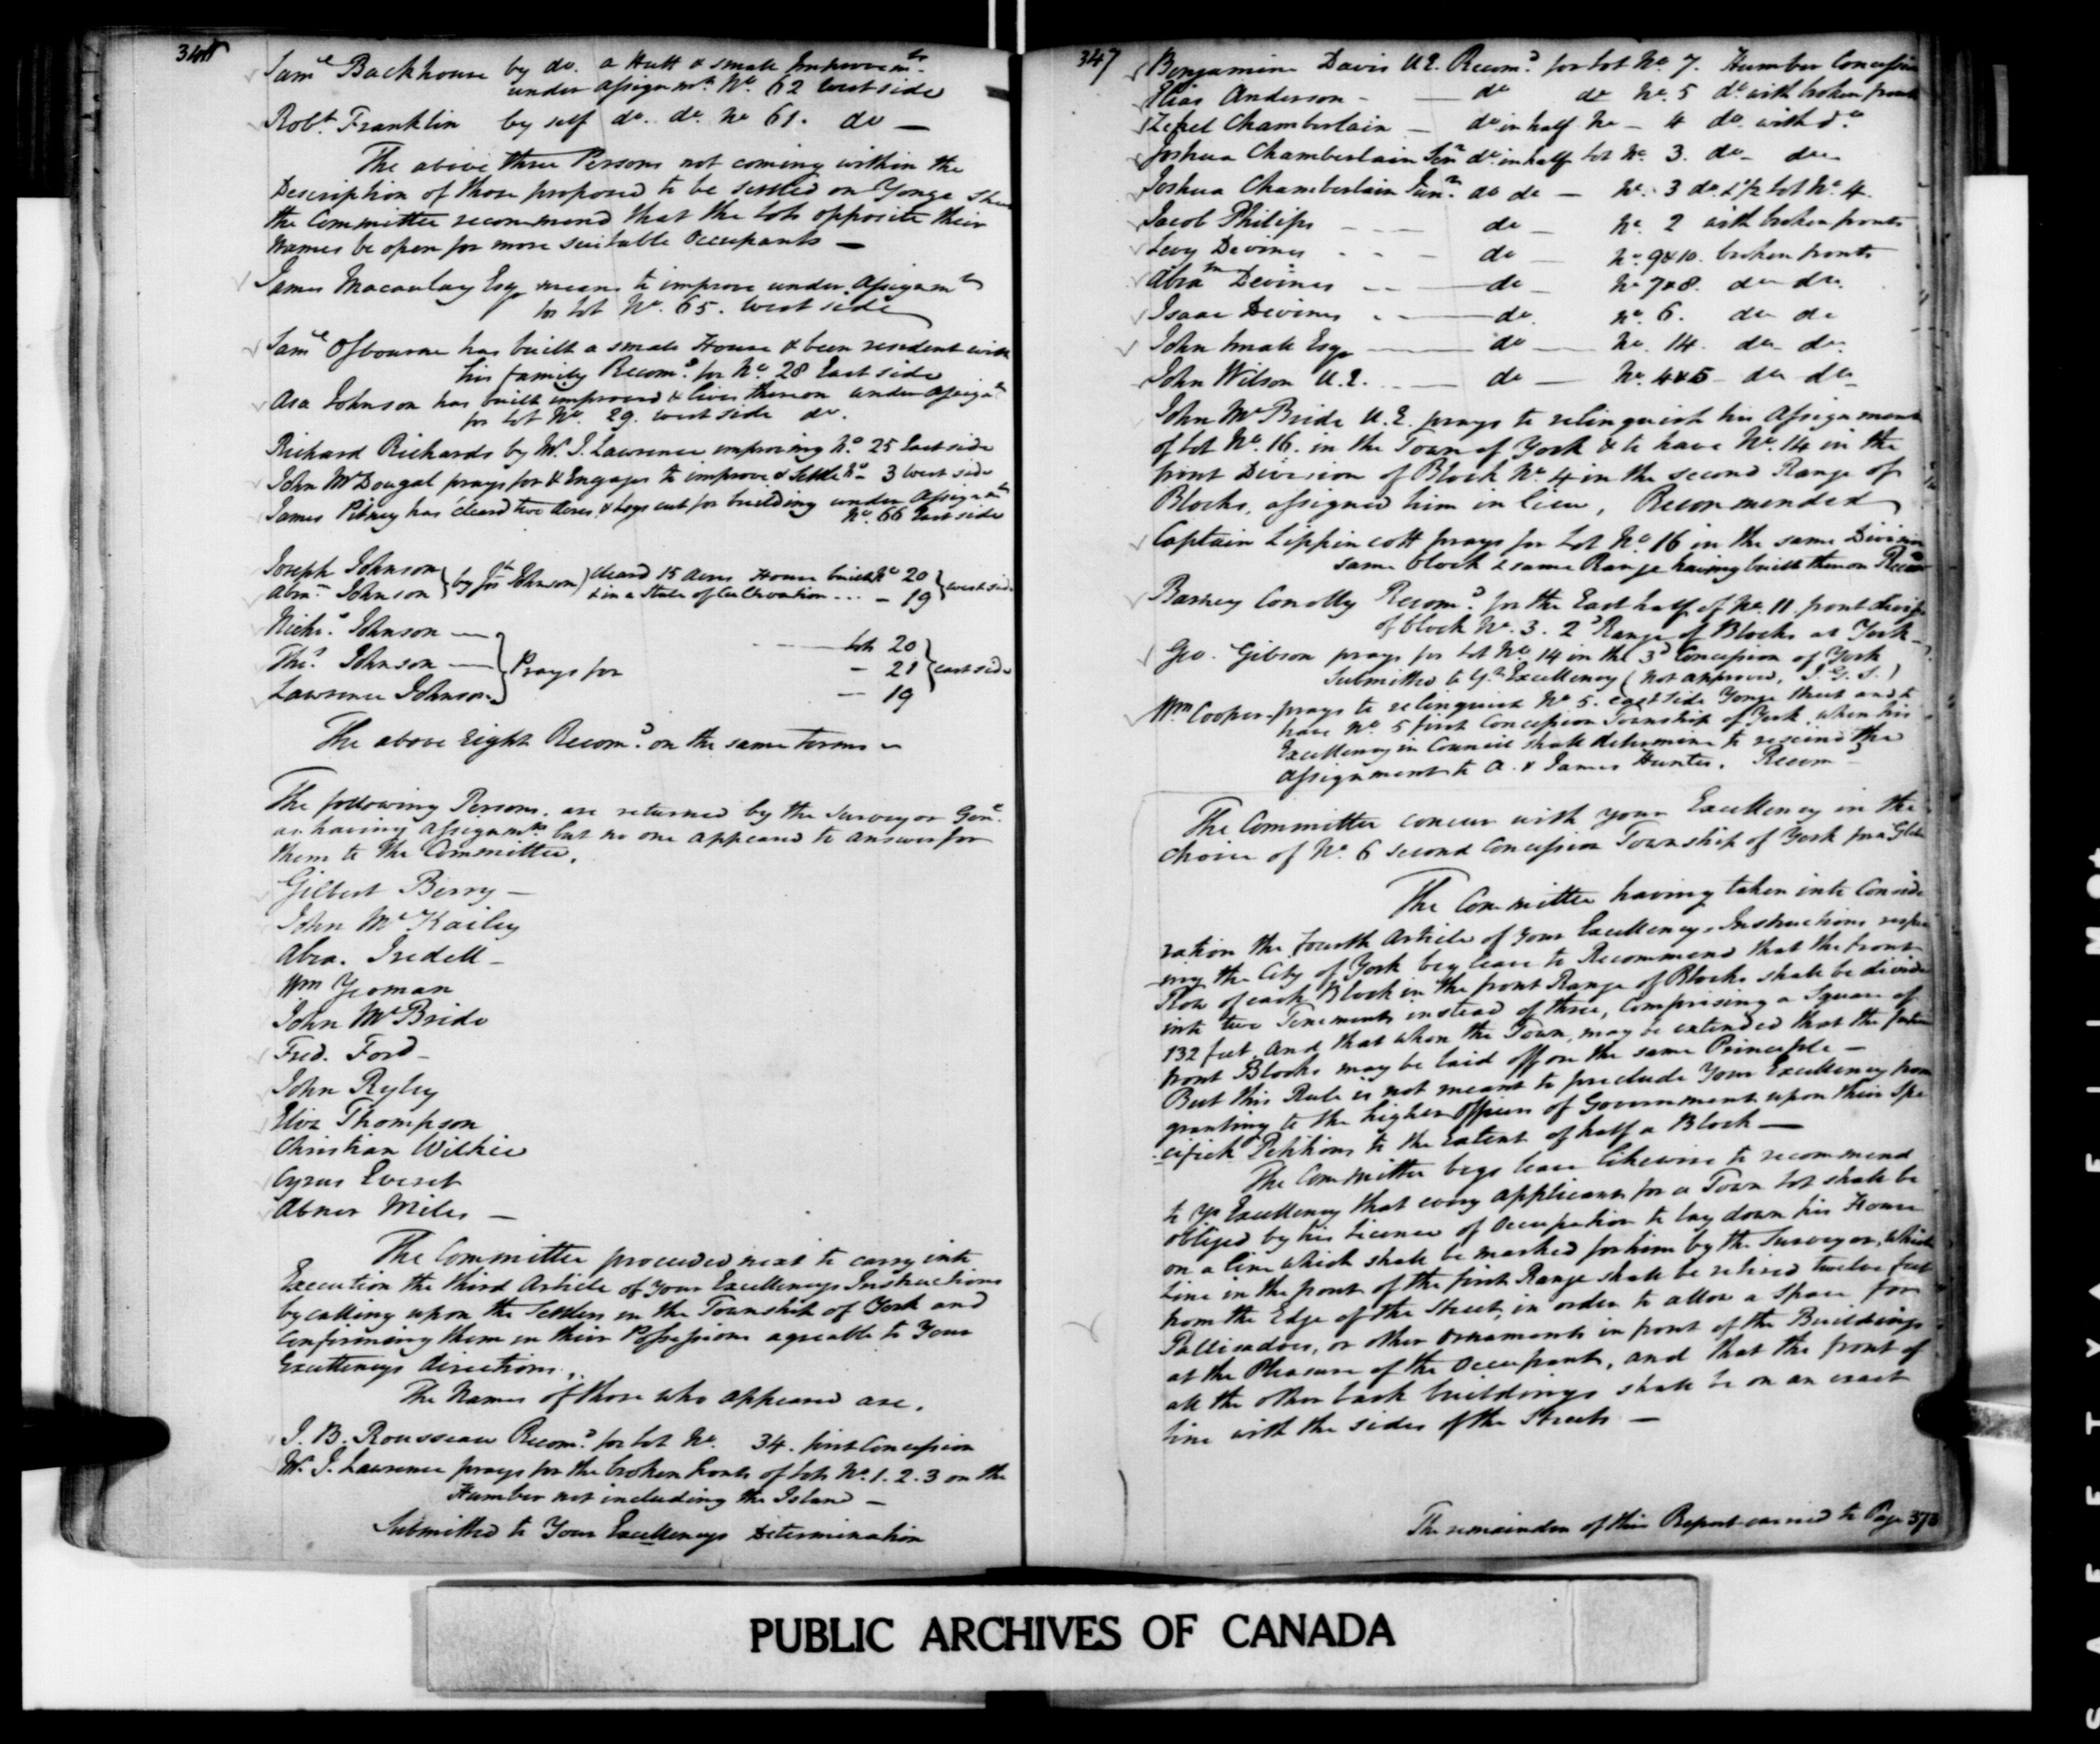 Sam.l Backhouse by do. a Hutt & small Improvem.ts
under assignm.t No. 62 west side
Rob.t Franklin by self do. do. No 61. do —
The above three Persons not coming within the
Description of those proposed to be settled on Yonge Street
the Committee recommend that the lots opposite their
Names be open for more suitable Occupants —
James Macaulay Esq.r means to improve under Assignm.t
for lot No. 65. west side
Sam.l Osbourne has built a small House & been resident with
his family Recom.d for No. 28 East side
Asa Johnson has built improved & lives thereon under Assign.t
for lot No. 29. west side do.
Richard Richards by W. I. Lawrence improving No. 25 East side
John McDougal prays for & Engages to improve & settle No - 3 west side
James Pitney has cleard two Acres & Logs cut for building under Assignm.t
No. 66 East side
Joseph Johnson
Abra.m Johnson } by Jos. Johnson) cleard 15 Acres House built No 20 } west side
& in a State of Cultivation ... - 19
Nich.s Johnson —
Tho.s Johnson —
Lawrence Johnson } Prays for
lot 20
- 21
— 19 } east side
The above eight Recom.d on the same terms —
The following Persons are returned by the Surveyor Gen.l
as having Assignm.ts but no one appeared to answer for
them to the Committee.
Gilbert Berry —
John McKailey
Abra. Iredell —
Wm Yeoman
John McBride
Fred. Ford —
John Ryley
Eliz Thompson
Christian Wilkie
Cyrus Everet
Abner Miles —
The Committee proceeded next to carry into
Execution the third Article of Your Excellencys Instructions
by calling upon the Settlers in the Township of York and
confirming them in their Possessions agreable to Your
Excellencys directions.
The Names of those who appeared are.
J. B. Rousseau Recom.d for lot No. 34. first Concession
W. I. Lawrence prays for the broken fronts of lots No. 1. 2. 3 on the
Humber not including the Island —
Submitted to Your Excellencys Determination
347
Benjamine Davis U.E. Recom.d for lot No. 7. Humber Concession
Elias Anderson - — do do No. 5 do. with broken front
Joshua Chamberlain Sen.r do in half lot No. 3. do - do -
Joshua Chamberlain Jun.r do do — No. 3 do. & 1/2 lot No. 4
Jacob Philips - - - do — No. 2 with broken fronts
Levy Devines - - - do — No. 9 & 10. broken fronts
Abra.m Devines - - — do — No 7 & 8. do do.
Isaac Devines - — do. No. 6. do do
John Small Esq.r — do — No. 14. do do.
John Wilson U.E. - - — do — No. 4 & 5 - do do
John McBride U.E. prays to relinquish his Assignment
of lot No. 16. in the Town of York & to have No. 14 in the
front Division of Block No. 4 in the second Range of
Blocks, assigned him in lieu, Recommended
Captain Lippincott prays for Lot No. 16 in the same Division
same block & same Range having built thereon Recom
Barney Conolly Recom.d for the East half of No. 11 front divis
of block No. 3. 2.d Range of Blocks at York —
Geo. Gibson prays for lot No. 14 in the 3.d Concession of York
Submitted to Y.r Excellency (Not approved, J. G. S.)
Wm Cooper prays to relinquish No 5. east side Yonge Street and to
have No. 5 first Concession Township of York, when his
Excellency in Council shall determine to rescind the
assignment to A. & James Hunter. Recom.d
The Committee concur with your Excellency in the
choice of No. 6 second Concession Township of York for a Glebe
The Committee having taken into Conside
ration the fourth Article of Your Excellencys Instructions respec
ting the City of York beg leave to Recommend that the front
Row of each Block in the front Range of Blocks shall be divided
into two Tenements instead of three, Comprising a Square of
132 feet, And that when the Town, may be extended that the future
front Blocks may be laid off on the same Principle —
But this Rule is not meant to preclude Your Excellency from
granting to the higher Officers of Government upon their Spe
-cifick Petitions to the Extent of half a Block —
The Committee begs leave likewise to recommend
to Yr. Excellency that every applicant for a Town lot shall be
obliged by his Licence of Occupation to lay down his House
on a line which shall be marked for him by the Surveyor, which
Line in the front of the first Range shall be retired twelve feet
from the Edge of the Street, in order to allow a Space for
Pallisadoes, or other Ornaments in front of the Buildings
at the Pleasure of the Occupant, and that the front of
all the other back buildings shall be on an exact
line with the sides of the Streets —
The remainder of this Report carried to Page 373
PUBLIC ARCHIVES OF CANADA